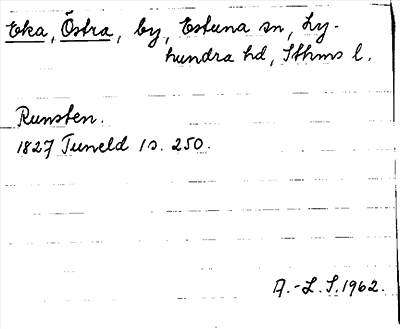 Eka, Östra, by, Estuna sn, Ly-
hundra hd, Sthms l.
Runsten.
1827 Tuneld 1 s. 250.
A.-L. S. 1962.